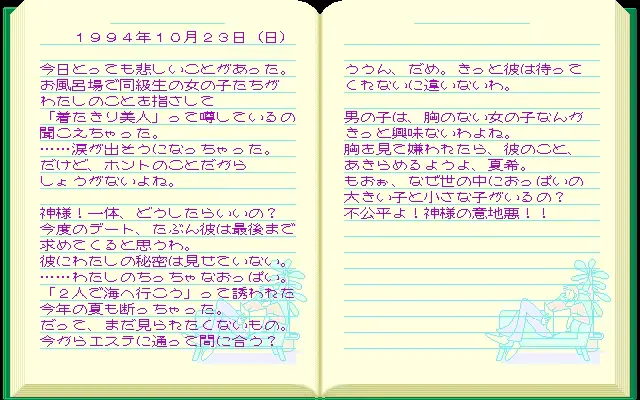 １９９４年１０月２３日（日）
今日とっても悲しいことがあった。
お風呂場で同級生の女の子たちが
わたしのことを指さして
「着たきり美人」って噂しているの
聞こえちゃった。
……涙が出そうになっちゃった。
だけど、ホントのことだから
しょうがないよね。
神様！一体、どうしたらいいの？
今度のデート、たぶん彼は最後まで
求めてくると思うわ。
彼にわたしの秘密は見せていない。
……わたしのちっちゃなおっぱい。
「２人で海へ行こう」って誘われた
今年の夏も断っちゃった。
だって、まだ見られたくないもの。
今からエステに通って間に合う？
ううん、だめ。きっと彼は待って
くれないに違いないわ。
男の子は、胸のない女の子なんか
きっと興味ないわよね。
胸を見て嫌われたら、彼のこと、
あきらめるようよ、夏希。
もおぉ、なぜ世の中におっぱいの
大きい子と小さな子がいるの？
不公平よ！神様の意地悪！！